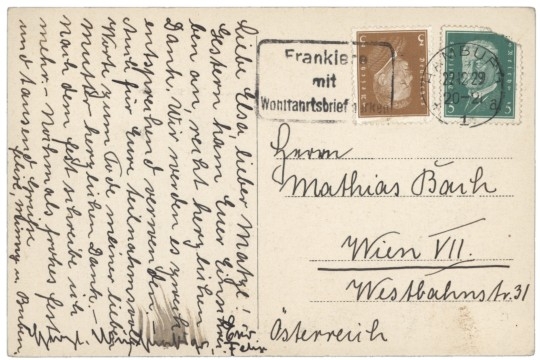 Liebe Elsa, lieber Matzl!
Gestern kam Euer Einschrei-
ben an, recht herzlichen
Dank. Wir werden es zweck-
entsprechend verwenden.
Und für Eure teilnahmsvollen
Worte zum Tode meiner lieben
Mutter herzlichen Dank. –
Nach dem Fest schreibe ich
mehr. – Nochmals frohes Fest
und tausend Grüße
Eure
Frankiere
mit
Wohlfahrtsbriefmarken
3
3
5
5
HAMBURG
23.12.29
20-21
1
a
Herrn
Mathias Bach
Wien VII.
Westbahnstr. 31
Österreich